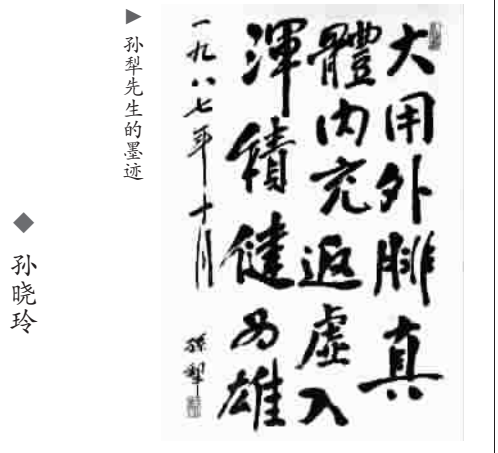 大用外腓真
體内充返虚入
渾積健为雄
一九八七年十月
孫犁
▶孙犁先生的墨迹
◆孙晓玲